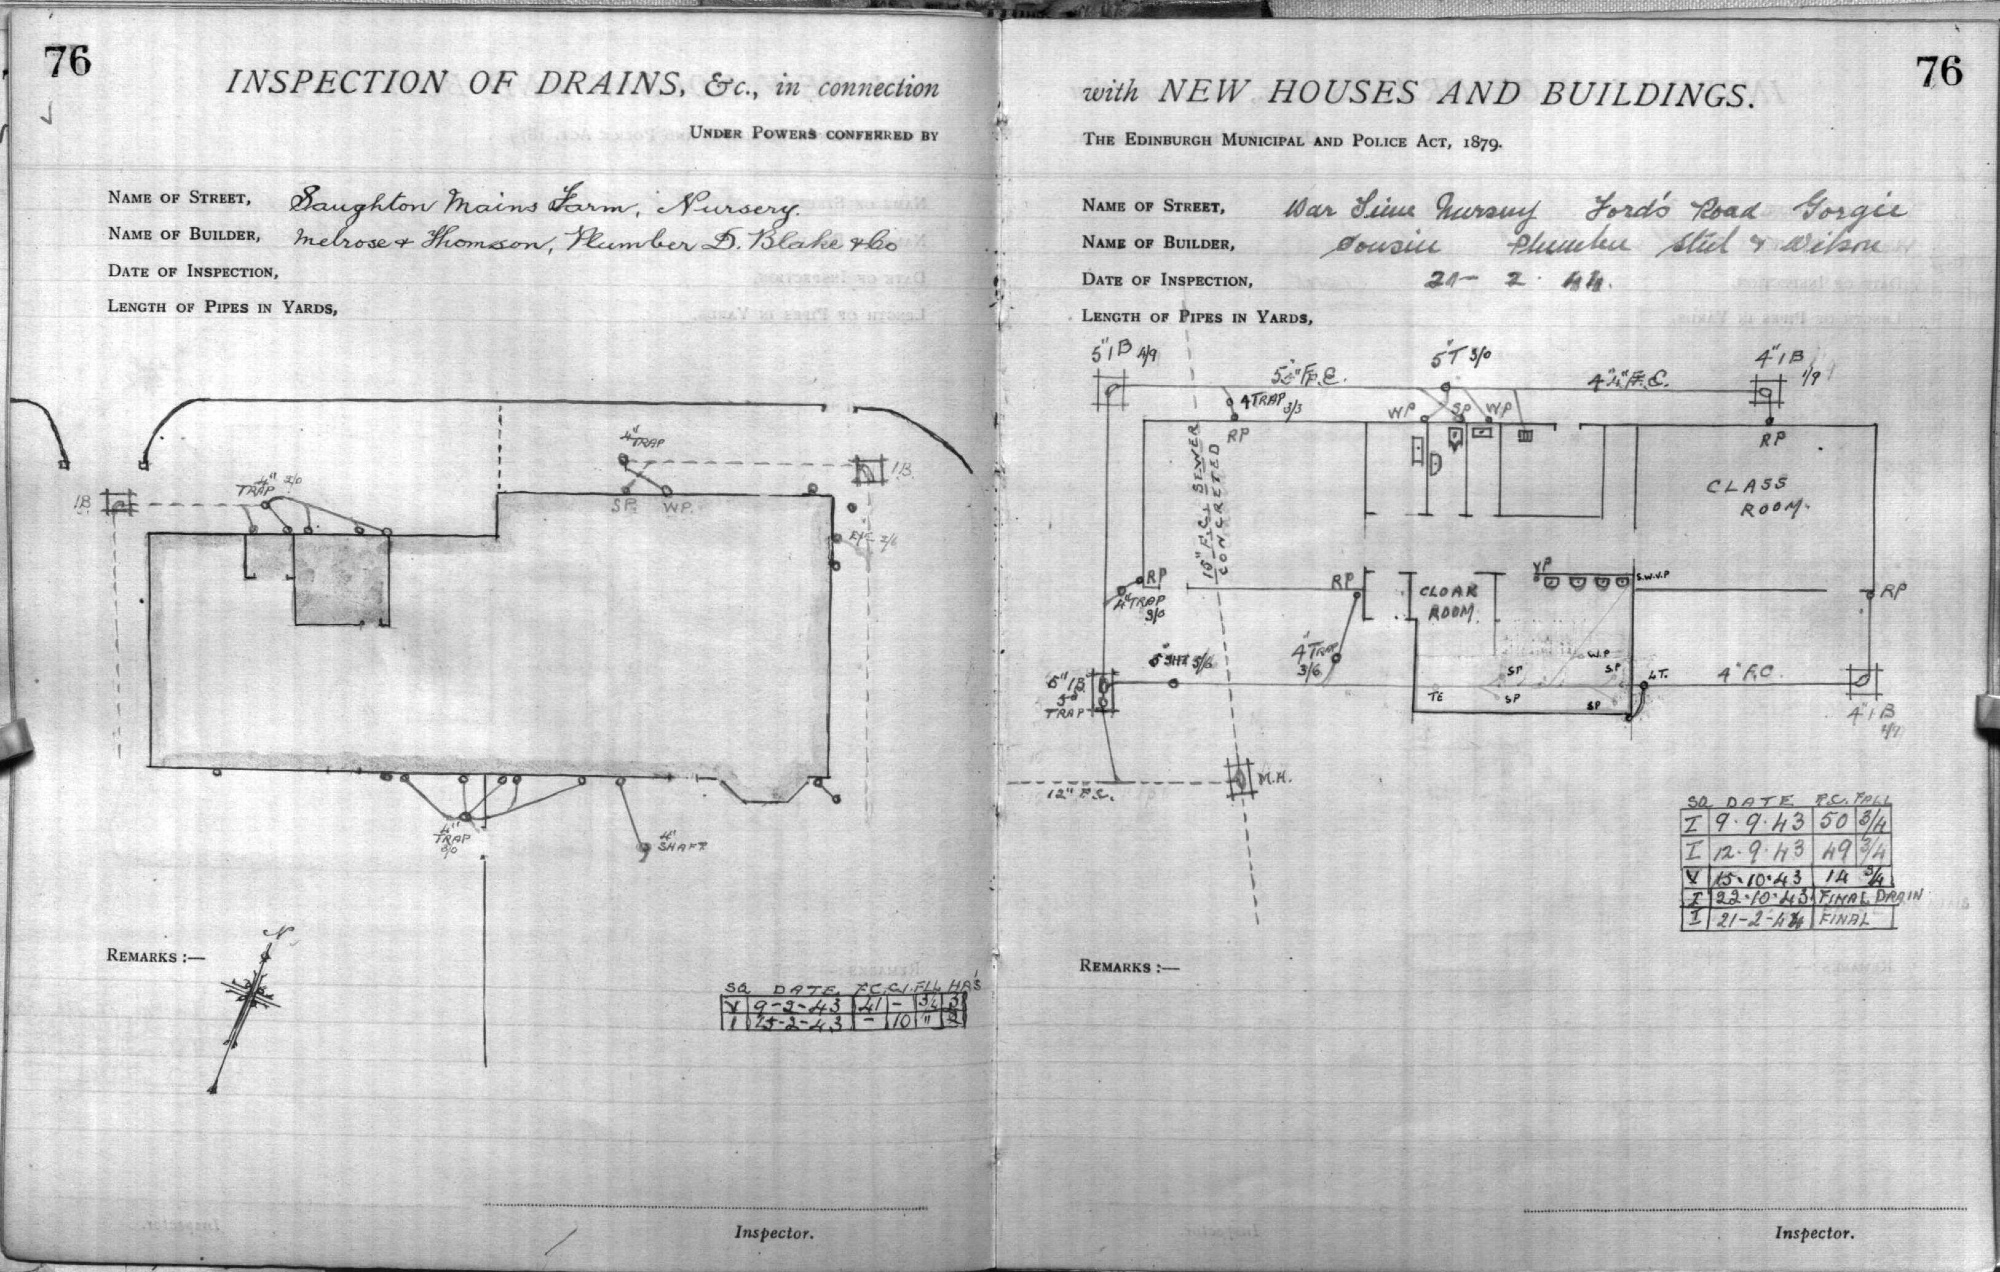 76
INSPECTION OF DRAINS, &c., in connection
UNDER POWERS CONFERRED BY
NAME OF STREET, Saughton Mains Farm, Nursery.
NAME OF BUILDER, Melrose & Thomson, Plumber D. Blake & Co
DATE OF INSPECTION,
LENGTH OF PIPES IN YARDS,
4" TRAP
I.B.
4" 2/0
TRAP
IB
SP. WP.
2/6
4"
TRAP
4"
SHAFT
N
REMARKS :—
SQ DATE F.C. C.I. FLL HR'S
V 9-2-43 41 - 3/4 3
I 15-2-43 - 10 " 2
Inspector.
76
with NEW HOUSES AND BUILDINGS.
THE EDINBURGH MUNICIPAL AND POLICE ACT, 1879.
NAME OF STREET, War Time Nursery Ford's Road Gorgie
NAME OF BUILDER, Cousin Plumber Steel & Wilson
DATE OF INSPECTION, 21- 2. 44.
LENGTH OF PIPES IN YARDS,
5" IB 4/9
5" F.C.
5" T 3/0
4" F.C.
4" IB 1/9
4 TRAP 3/3
WP SP WP
RP
RP
15" F.C. SEWER
CONCRETED
CLASS
ROOM.
RP
4" TRAP
3/0
RP
CLOAK
ROOM.
VP
S.W.V.P
RP
4" TRAP
3/6
W.P
SP
SP
TE
SP
SP
4T.
4" F.C.
4" IB
6" IB
5"
TRAP
M.H.
12" F.C.
SQ DATE F.C. FALL
I 9.9.43 50 3/4
I 12.9.43 49 3/4
V 15.10.43 14 3/4
I 22.10.43 FINAL DRAIN
I 21-2-44 FINAL
REMARKS :—
Inspector.